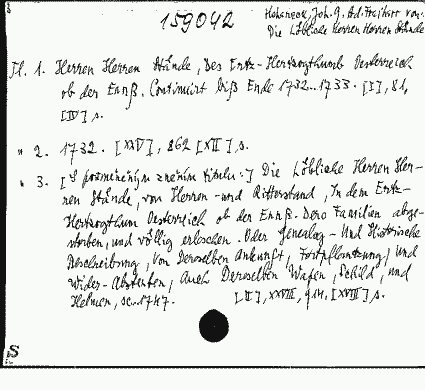 159042
Hoheneck, Joh. G. Ad. Freiherr von:
Die Löbliche Herren Herren Stände
Tl. 1. Herren Herren Stände, Des Ertz-Hertzogthumb Oesterreich
ob der Ennß. Continuirt biß Ende 1732..1733. [I], 81,
[IV] s.
" 2. 1732. [XXV], 862 [XII], s.
" 3. [S pozměněným zněním titulu:] Die Löbliche Herren Her-
ren Stände, von Herren- und Ritterstand, In dem Ertz-
Hertzogthum Oesterreich ob der Ennß. Dero Familien abge-
storben, und völlig erloschen. Oder Genealog- Und Historische
Beschreibung, Von Deroselben Ankunft, Fortpflantzung, Und
Wider-Absterben, Auch Deroselben Wapen, Schild, und
Helmen, sc. 1747. [II], XXVIII, 914, [XVIII], s.
S